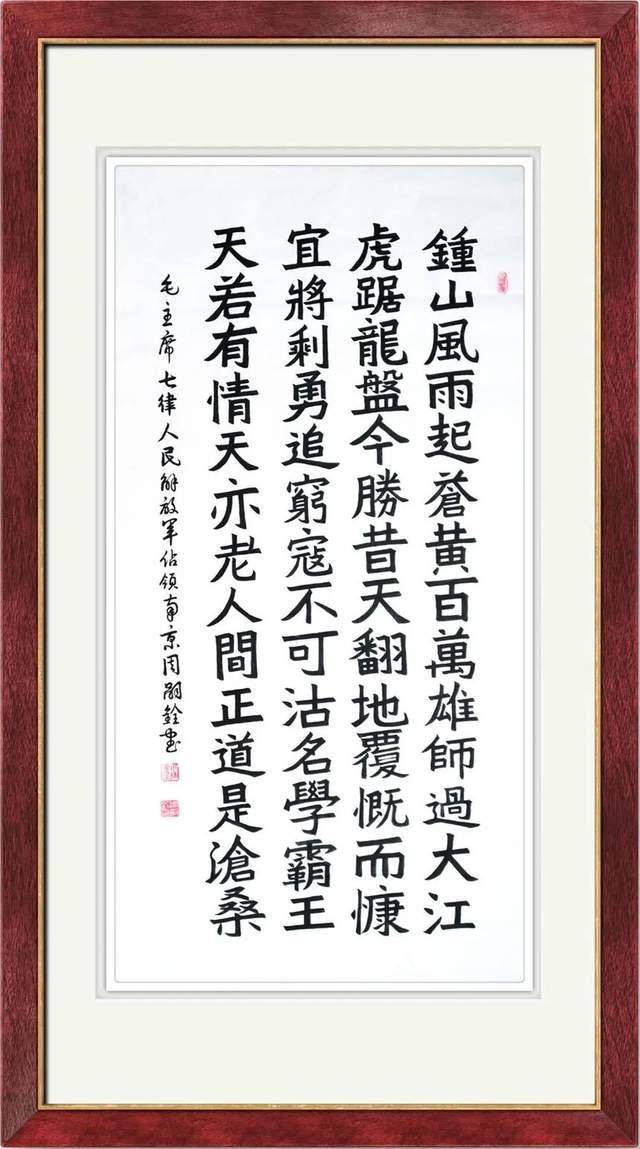 鍾山風雨起蒼黄百萬雄師過大江
虎踞龍盤今勝昔天翻地覆慨而慷
宜將剩勇追窮寇不可沽名學霸王
天若有情天亦老人間正道是滄桑
毛主席七律人民解放軍佔領南京周嗣銓書